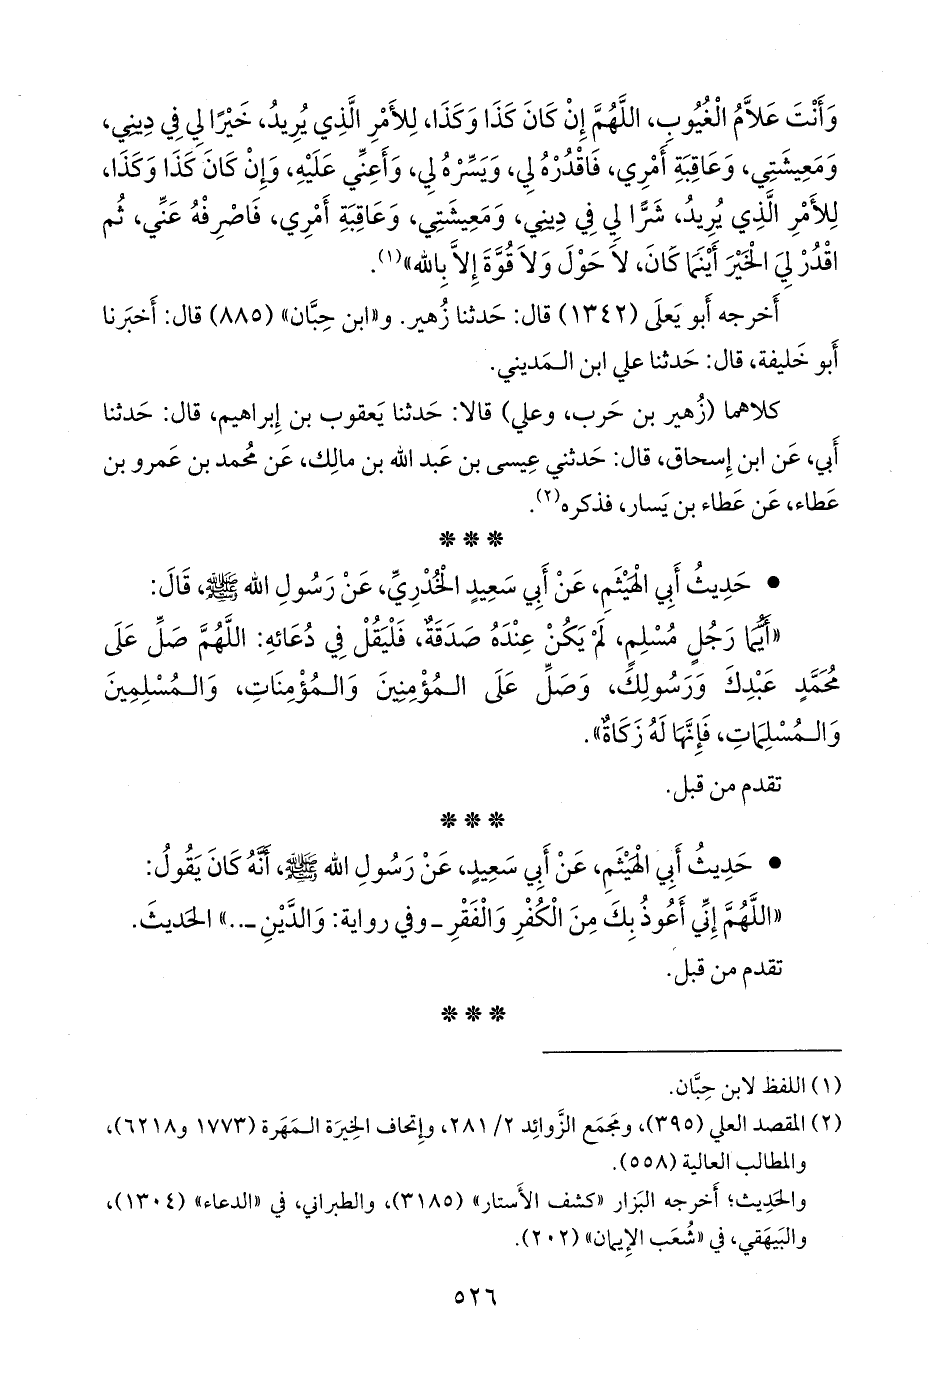 وَأَنْتَ عَلاَّمُ الْغُيُوبِ، اللَّهُمَّ إِنْ كَانَ كَذَا وَكَذَا، لِلأَمْرِ الَّذِي يُرِيدُ، خَيْرًا لِي فِي دِينِي،
وَمَعِيشَتِي، وَعَاقِبَةِ أَمْرِي، فَاقْدُرْهُ لِي، وَيَسِّرْهُ لِي، وَأَعِنِّي عَلَيْهِ، وَإِنْ كَانَ كَذَا وَكَذَا،
لِلأَمْرِ الَّذِي يُرِيدُ، شَرًّا لِي فِي دِينِي، وَمَعِيشَتِي، وَعَاقِبَةِ أَمْرِي، فَاصْرِفْهُ عَنِّي، ثُم
اقْدُرْ لِيَ الْخَيْرَ أَيْنَمَا كَانَ، لاَ حَوْلَ وَلاَ قُوَّةَ إِلاَّ بِالله»(١).
أَخرجه أَبو يَعلَى (١٣٤٢) قال: حَدثنا زُهير. و«ابن حِبَّان» (٨٨٥) قال: أَخبَرنا
أَبو خَليفة، قال: حَدثنا علي ابن الـمَديني.
كلاهما (زُهير بن حَرب، وعلي) قالا: حَدثنا يَعقوب بن إِبراهيم، قال: حَدثنا
أَبي، عَن ابن إِسحاق، قال: حَدثني عِيسى بن عَبد الله بن مالِك، عَن مُحمد بن عَمرو بن
عَطاء، عَن عَطاء بن يَسار، فذكره(٢).
* * *
• حَدِيثُ أَبِي الْهَيْثَمِ، عَنْ أَبِي سَعِيدٍ الْخُدْرِيِّ، عَنْ رَسُولِ الله ﷺ، قَالَ:
«أَيُّمَا رَجُلٍ مُسْلِمٍ، لَمْ يَكُنْ عِنْدَهُ صَدَقَةٌ، فَلْيَقُلْ فِي دُعَائِهِ: اللَّهُمَّ صَلِّ عَلَى
مُحَمَّدٍ عَبْدِكَ وَرَسُولِكَ، وَصَلِّ عَلَى الـمُؤْمِنِينَ وَالـمُؤْمِنَاتِ، وَالـمُسْلِمِينَ
وَالـمُسْلِمَاتِ، فَإِنَّهَا لَهُ زَكَاةٌ».
تقدم من قبل.
* * *
• حَدِيثُ أَبِي الْهَيْثَمِ، عَنْ أَبِي سَعِيدٍ، عَنْ رَسُولِ الله ﷺ، أَنَّهُ كَانَ يَقُولُ:
«اللَّهُمَّ إِنِّي أَعُوذُ بِكَ مِنَ الْكُفْرِ وَالْفَقْرِ ـ وفي رواية: وَالدَّيْنِ ـ..» الحَديثَ.
تقدم من قبل.
* * *
(١) اللفظ لابن حِبَّان.
(٢) المقصد العلي (٣٩٥)، ومَجمَع الزَّوائِد ٢/ ٢٨١، وإتحاف الخِيرَة الـمَهَرة (١٧٧٣ و٦٢١٨)،
والمطالب العالية (٥٥٨).
والحَدِيث؛ أَخرجه البَزار «كشف الأَستار» (٣١٨٥)، والطبراني، في «الدعاء» (١٣٠٤)،
والبَيهَقي، في «شُعَب الإيمان» (٢٠٢).
٥٢٦